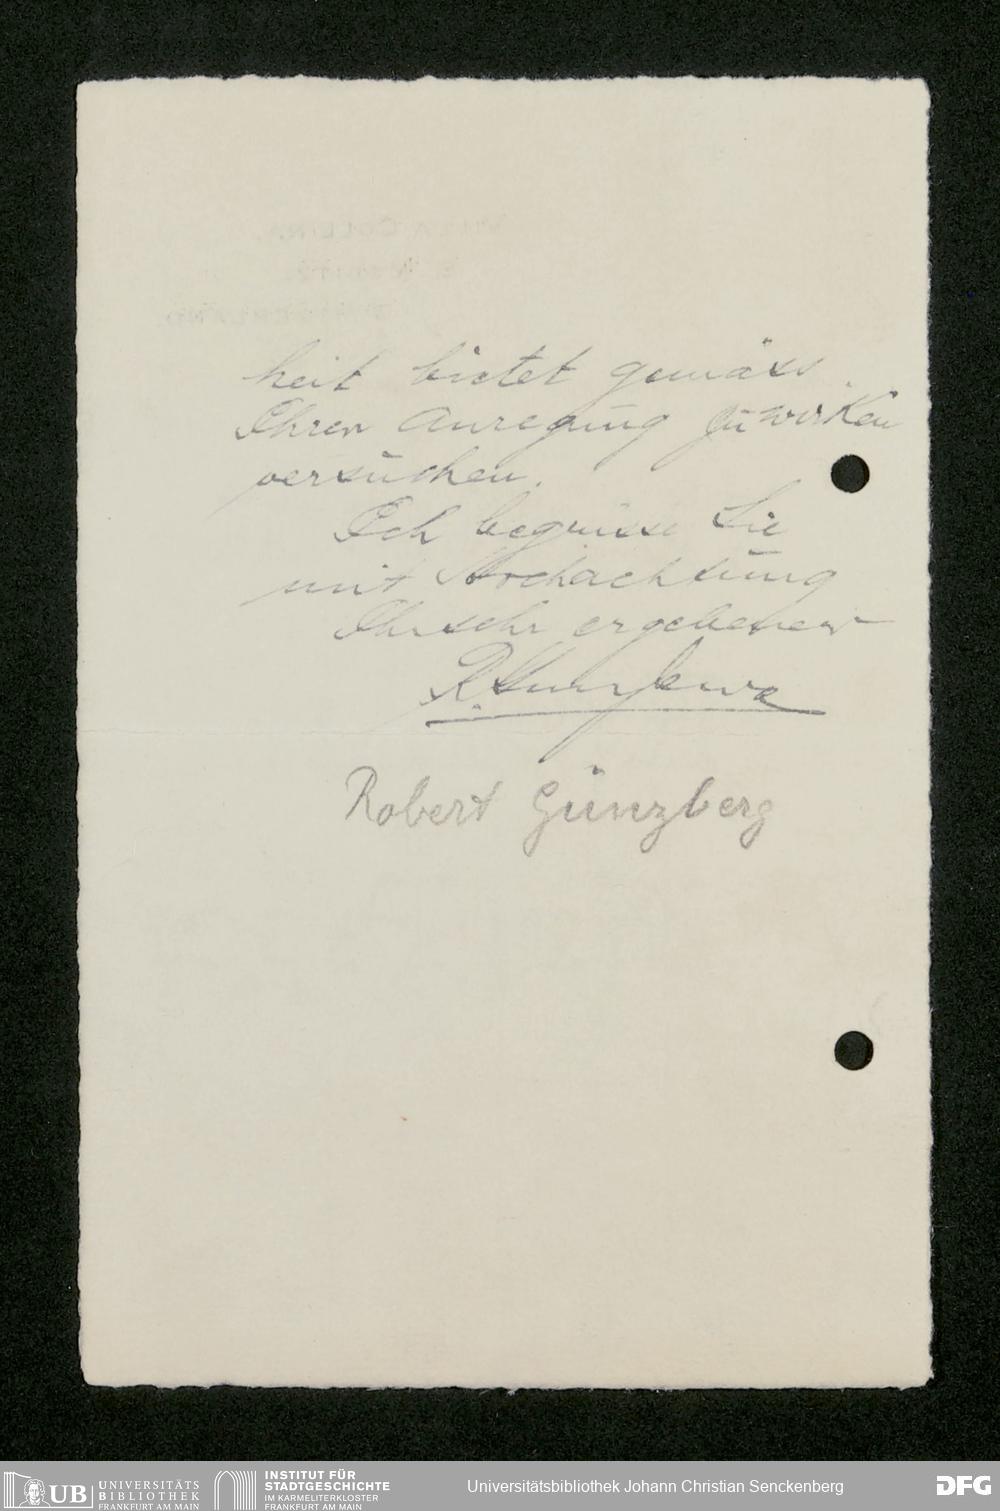 heit bietet gemäss
Ihren Anregung zu wirken
versuchen.
Ich begrüsse Sie
mit Hochachtung
Ihr sehr ergebener
Robert Günzberg
UB UNIVERSITÄTS
BIBLIOTHEK
FRANKFURT AM MAIN
INSTITUT FÜR
STADTGESCHICHTE
IM KARMELITERKLOSTER
FRANKFURT AM MAIN
Universitätsbibliothek Johann Christian Senckenberg
DFG